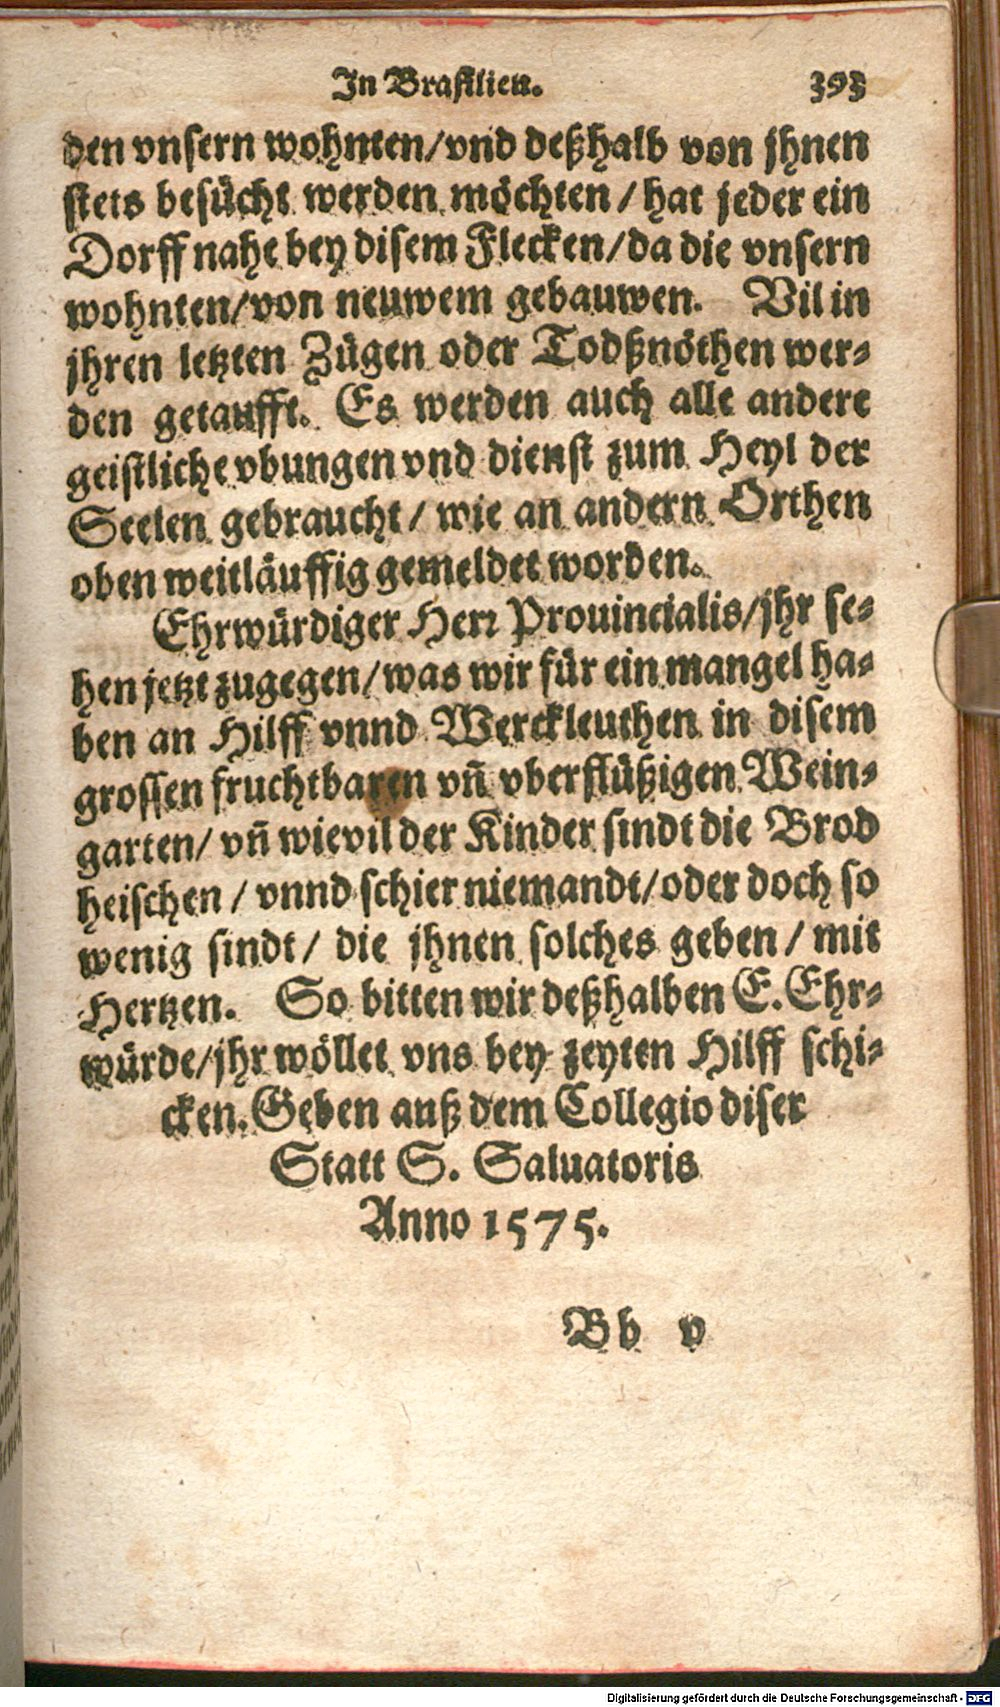 In Brasilien. 393
den vnsern wohnten/vnd deßhalb von jhnen
stets besücht werden möchten / hat jeder ein
Dorff nahe bey disem Flecken/da die vnsern
wohnten/von neuwem gebauwen. Vil in
jhren letzten Zügen oder Todßnöthen wer-
den getaufft. Es werden auch alle andere
geistliche vbungen vnd dienst zum Heyl der
Seelen gebraucht / wie an andern Orthen
oben weitläuffig gemeldet worden.
Ehrwürdiger Herr Prouincialis/jhr se-
hen jetzt zugegen/was wir für ein mangel ha-
ben an Hilff vnnd Werckleuthen in disem
grossen fruchtbaren vñ vberflüßigen Wein-
garten/ vñ wievil der Kinder sindt die Brod
heischen / vnnd schier niemandt/oder doch so
wenig sindt/ die jhnen solches geben / mit
Hertzen. So bitten wir deßhalben E. Ehr-
würde/jhr wöllet vns bey zeyten Hilff schi-
cken. Geben auß dem Collegio diser
Statt S. Saluatoris
Anno 1575.
Bb v
Digitalisierung gefördert durch die Deutsche Forschungsgemeinschaft - DFG